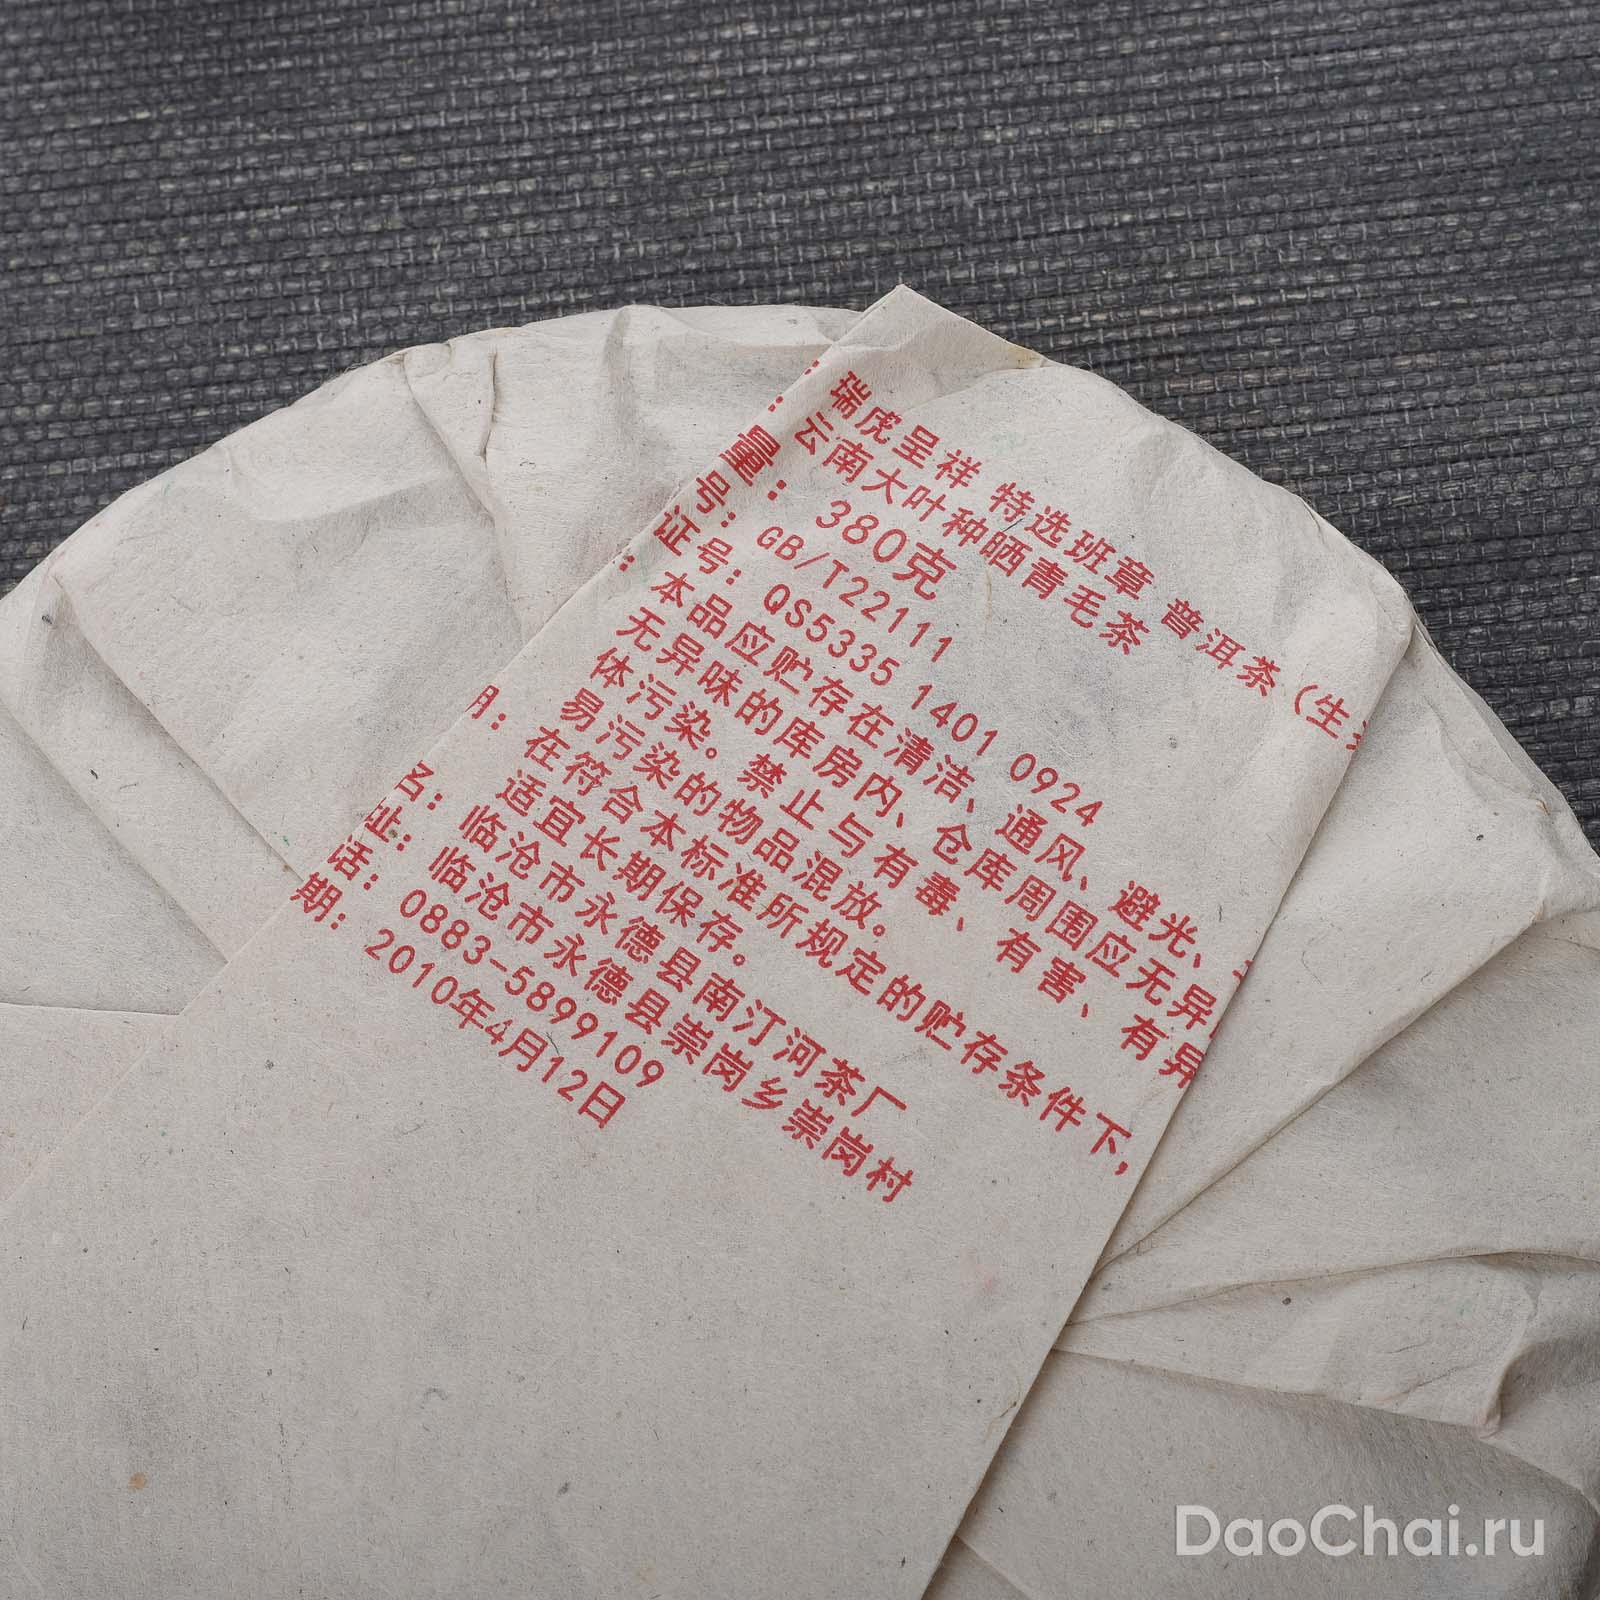 ：瑞虎呈祥 特选班章 普洱茶（生
：云南大叶种晒青毛茶
量：380克
号：GB/T22111
证号：QS5335 1401 0924
：本品应贮存在清洁、通风、避光、
无异味的库房内、仓库周围应无异
体污染。禁止与有毒、有害、有异
易污染的物品混放。
期：在符合本标准所规定的贮存条件下，
适宜长期保存。
名：临沧市永德县南汀河茶厂
址：临沧市永德县崇岗乡崇岗村
话：0883-5899109
期：2010年4月12日
DaoChai.ru